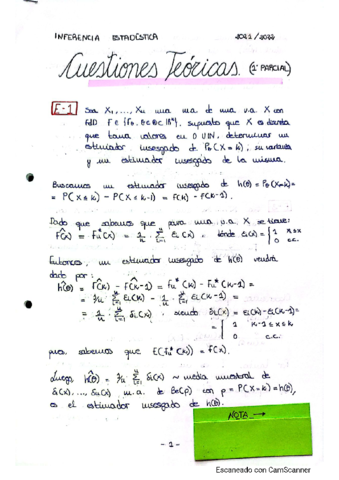 INFERENCIA ESTADÍSTICA 2021/2022
Cuestiones Teóricas. (1º PARCIAL)
E-1 Sea X₁, ..., Xₙ una ma de una v.a. X con
FdD F ∈ {F_θ, θ∈Θ⊂ℝᵏ}. supuesto que X es discreta
que toma valores en 0 UIN, determinar un
estimador insesgado de P_θ(X=k), su varianza
y un estimador insesgado de la misma.
Buscamos un estimador insesgado de h(θ) = P_θ(X=k) =
= P(X≤k) - P(X≤k-1) = F(k) - F(k-1).
Dado que sabemos que para una v.a. X se tiene:
F̂(x) = Fₙ*(x) = 1/n · Σᵢ₌₁ⁿ εᵢ(x), dónde εᵢ(x) = { 1 xᵢ≤x
0 c.c.
Entonces, un estimador insesgado de h(θ) vendrá
dado por:
ĥ(θ) = F̂(k) - F̂(k-1) = Fₙ*(k) - Fₙ*(k-1) =
= 1/n · Σᵢ₌₁ⁿ εᵢ(k) - 1/n · Σᵢ₌₁ⁿ εᵢ(k-1) =
= 1/n · Σᵢ₌₁ⁿ δᵢ(k), siendo δᵢ(k) = εᵢ(k) - εᵢ(k-1) =
= { 1 k-1≤x≤k
0 c.c.
pues sabemos que E(Fₙ*(x)) = F(x).
Luego, ĥ(θ) = 1/n · Σᵢ₌₁ⁿ δᵢ(k) ~ media muestral de
δ₁(k), ..., δₙ(k) m.a. de Be(p) con p = P(X=k) = h(θ),
es el estimador insesgado de h(θ).
NOTA →
- 1 -
Escaneado con CamScanner